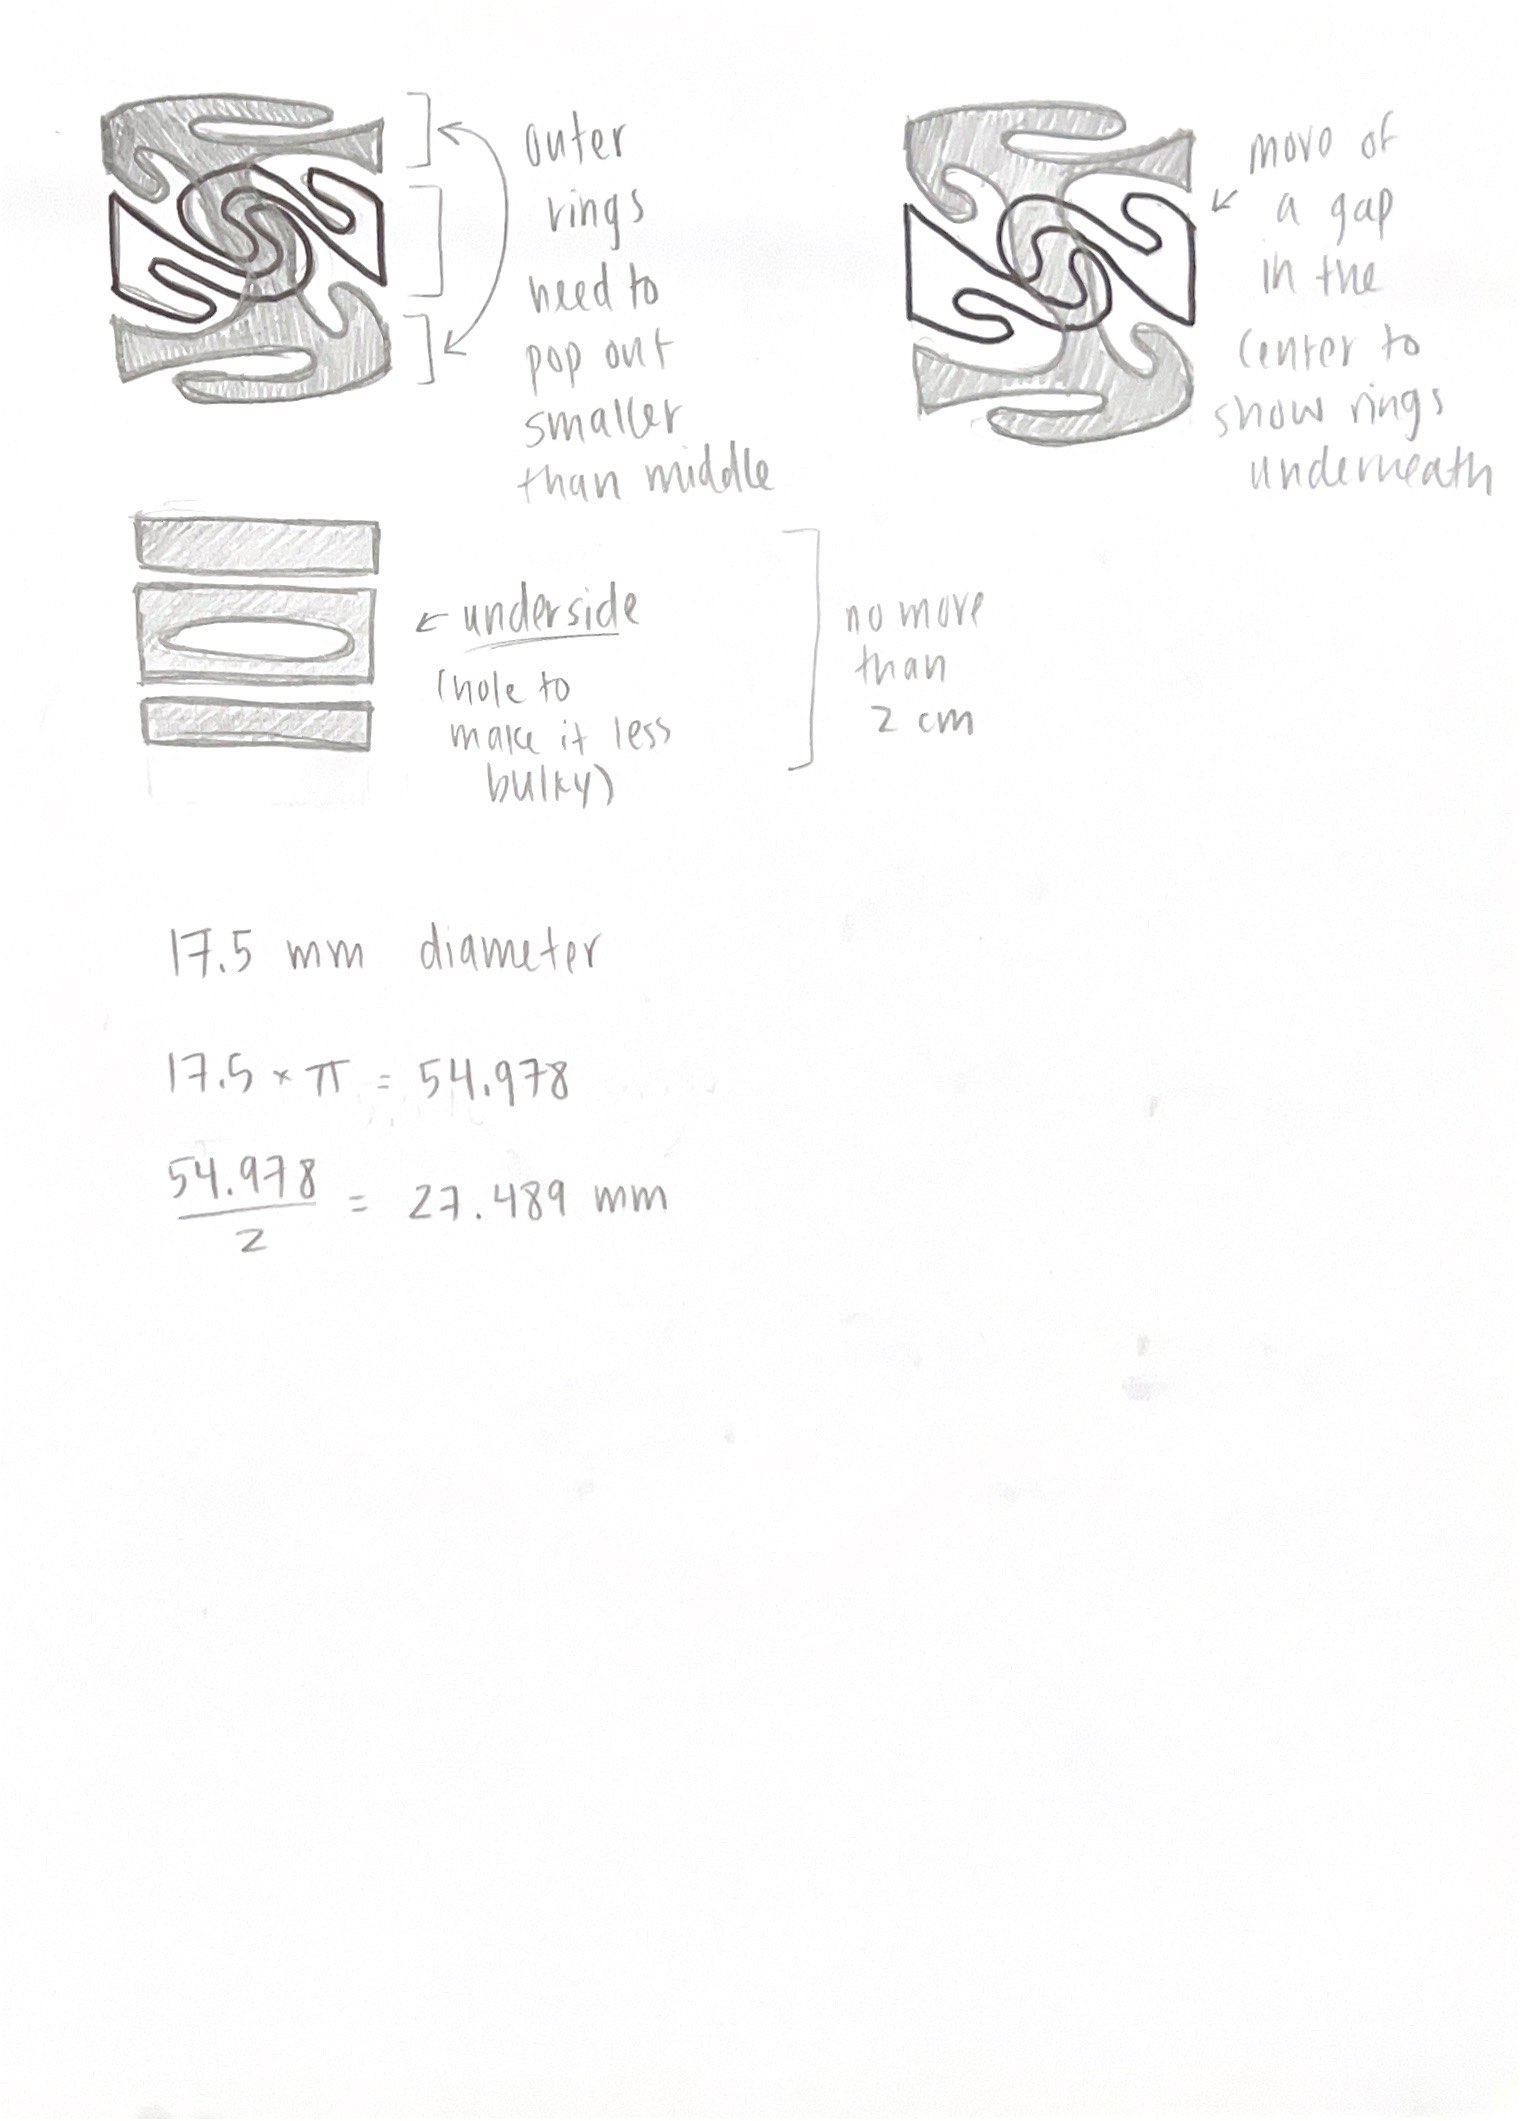 outer
rings
need to
pop out
smaller
than middle
move of
a gap
in the
center to
show rings
underneath
← underside
(hole to
make it less
bulky)
no more
than
2 cm
17.5 mm diameter
17.5 × π = 54.978
54.978
2
= 27.489 mm